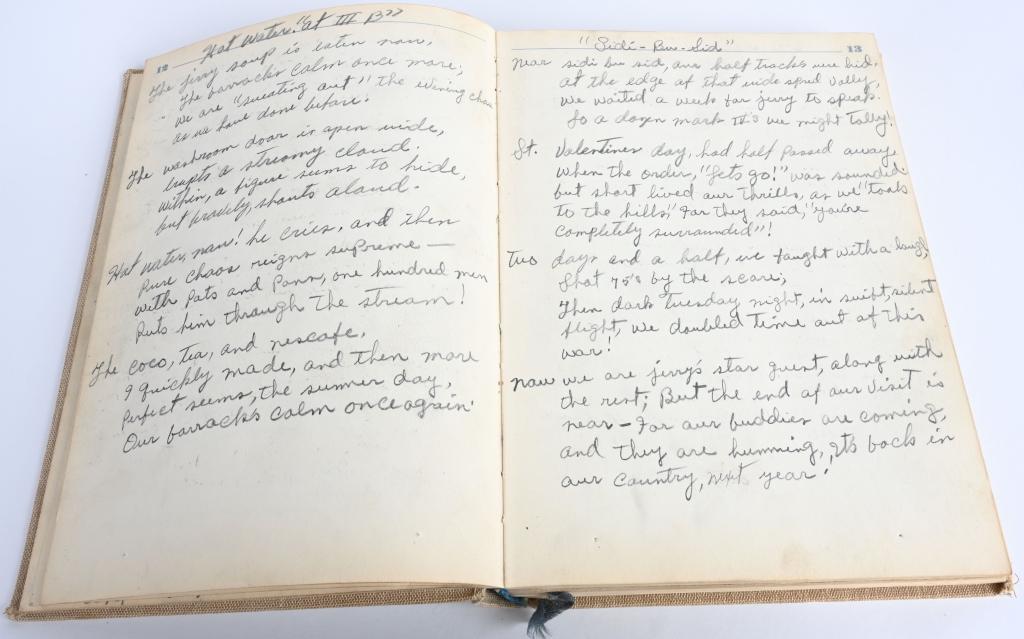 12
"Hot Water!" at III B"
The jerry soup is eaten now,
The barracks calm once more;
we are "sweating out" the evening chow
as we have done before.
The washroom door is open wide,
Erupts a streamy cloud.
Within, a figure seems to hide,
but bravely, shouts aloud.
Hot water, now! he cries, and then
Pure chaos reigns supreme —
With Pots and Pans, one hundred men
Puts him through the stream!
The coco, tea, and nescafe,
9 quickly made, and then more
Perfect seems, the summer day,
Our barracks calm once again.
13
"Sidi-Bou-Sid"
near sidi bou sid, our half tracks were hid,
at the edge of that wide spred valley,
we waited a week for jerry to speak.
So a dozen mark IV's we might tally!
St. Valentines day, had half passed away
When the order, "lets go!" was sounded
but short lived our thrills, as we "took
to the hills," For they said, "you're
completely surrounded"!
Two days and a half, we fought with a laugh,
Shot 75's by the score;
Then dark Tuesday night, in swift, silent
flight, we doubled time out of this
war!
now we are jerry's star guest, along with
the rest; But the end of our visit is
near — For our buddies are coming,
and they are humming, It's back in
our country, next year!